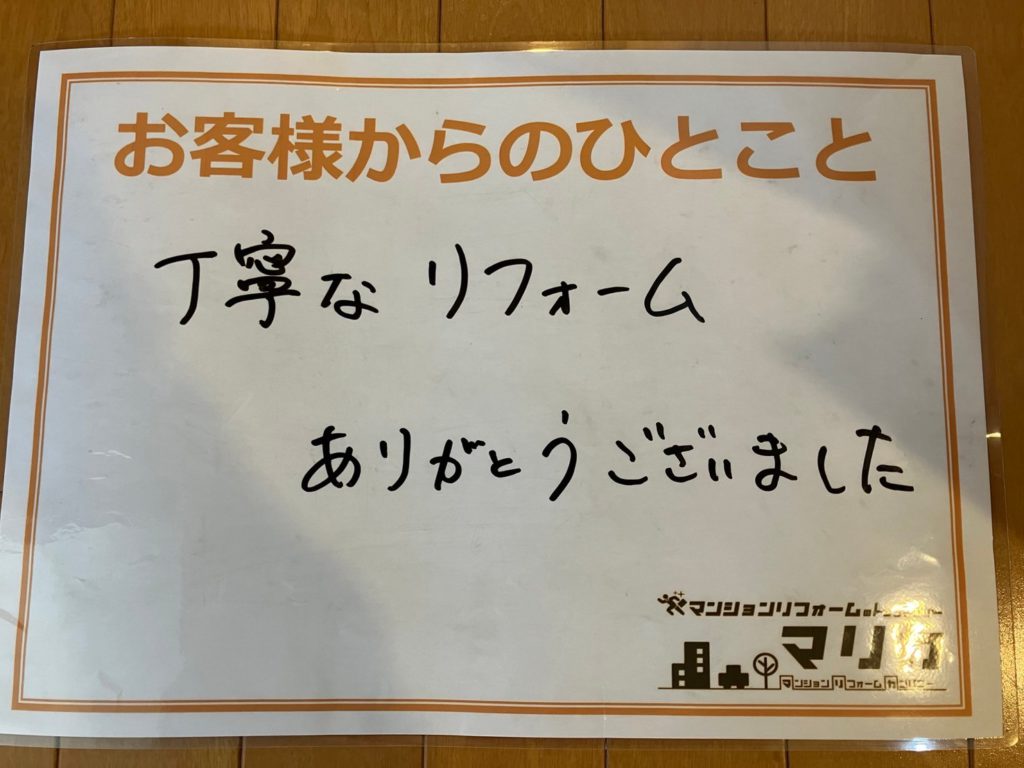 お客様からのひとこと
丁寧な リフォーム
ありがとうございました
マンションリフォームの
マリ
マンションリフォーム